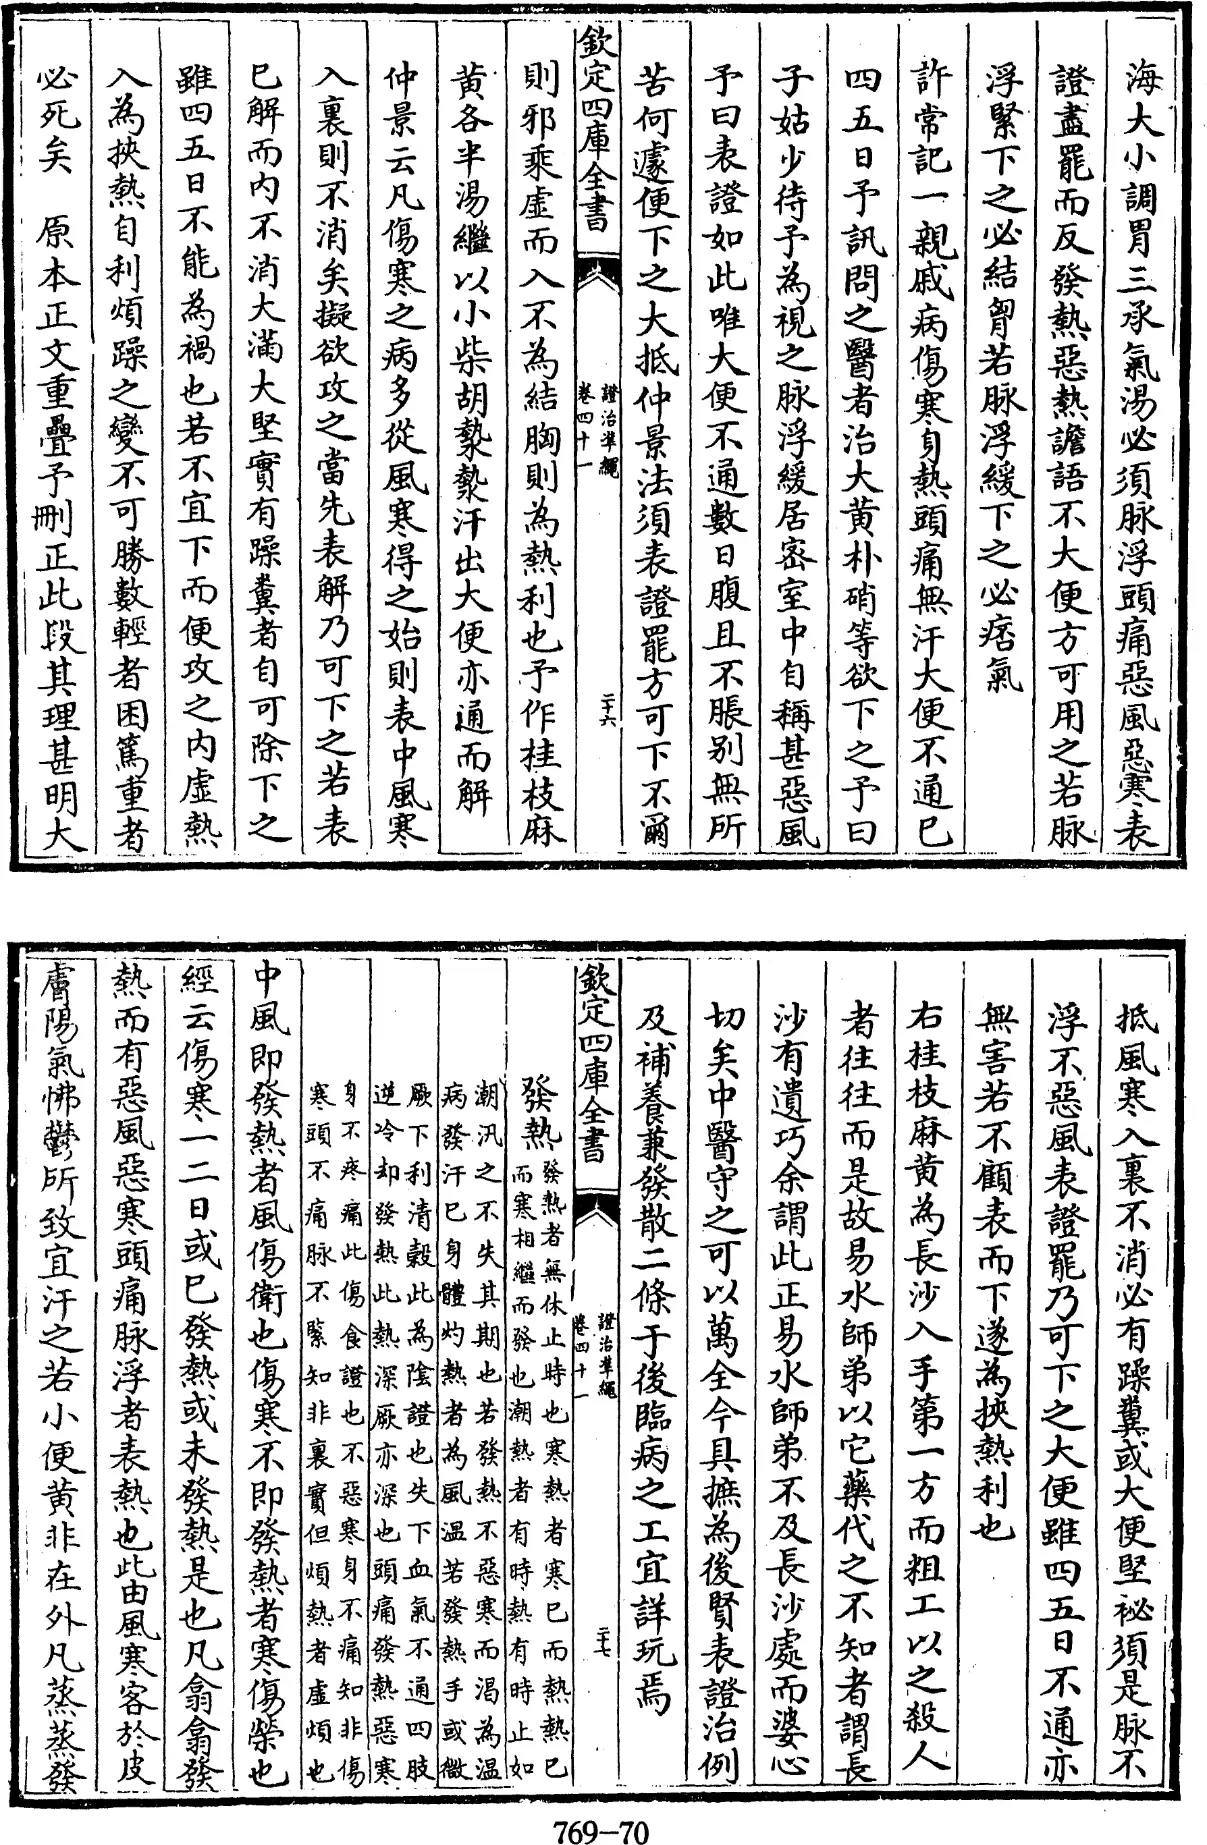 海大小調胃三承氣湯必須脉浮頭痛惡風惡寒表
證盡罷而反發熱惡熱譫語不大便方可用之若脉
浮緊下之必結胷若脉浮緩下之必痞氣
許常記一親戚病傷寒身熱頭痛無汗大便不通已
四五日予訊問之醫者治大黄朴硝等欲下之予曰
子姑少待予為視之脉浮緩居密室中自稱甚惡風
予曰表證如此唯大便不通數日腹且不脹别無所
苦何遽便下之大抵仲景法須表證罷方可下不爾
欽定四庫全書
證治準繩
卷四十一
二十六
則邪乘虛而入不為結胸則為熱利也予作桂枝麻
黄各半湯繼以小柴胡漐漐汗出大便亦通而解
仲景云凡傷寒之病多從風寒得之始則表中風寒
入裏則不消矣擬欲攻之當先表解乃可下之若表
已解而内不消大滿大堅實有躁糞者自可除下之
雖四五日不能為禍也若不宜下而便攻之内虛熱
入為挾熱自利煩躁之變不可勝數輕者困篤重者
必死矣　原本正文重疊予刪正此段其理甚明大
抵風寒入裏不消必有躁糞或大便堅祕須是脉不
浮不惡風表證罷乃可下之大便雖四五日不通亦
無害若不顧表而下遂為挾熱利也
右桂枝麻黄為長沙入手第一方而粗工以之殺人
者往往而是故易水師弟以它藥代之不知者謂長
沙有遺巧余謂此正易水師弟不及長沙處而婆心
切矣中醫守之可以萬全今具摭為後賢表證治例
及補養兼發散二條于後臨病之工宜詳玩焉
欽定四庫全書
證治準繩
卷四十一
二十七
發熱發熱者無休止時也寒熱者寒已而熱熱已
而寒相繼而發也潮熱者有時熱有時止如
潮汛之不失其期也若發熱不惡寒而渴為温
病發汗已身體灼熱者為風温若發熱手或微
厥下利清穀此為陰證也失下血氣不通四肢
逆冷却發熱此熱深厥亦深也頭痛發熱惡寒
身不疼痛此傷食證也不惡寒身不痛知非傷
寒頭不痛脉不緊知非裏實但煩熱者虛煩也
中風即發熱者風傷衛也傷寒不即發熱者寒傷榮也
經云傷寒一二日或已發熱或未發熱是也凡翕翕發
熱而有惡風惡寒頭痛脉浮者表熱也此由風寒客於皮
膚陽氣怫鬱所致宜汗之若小便黄非在外凡蒸蒸發
769-70